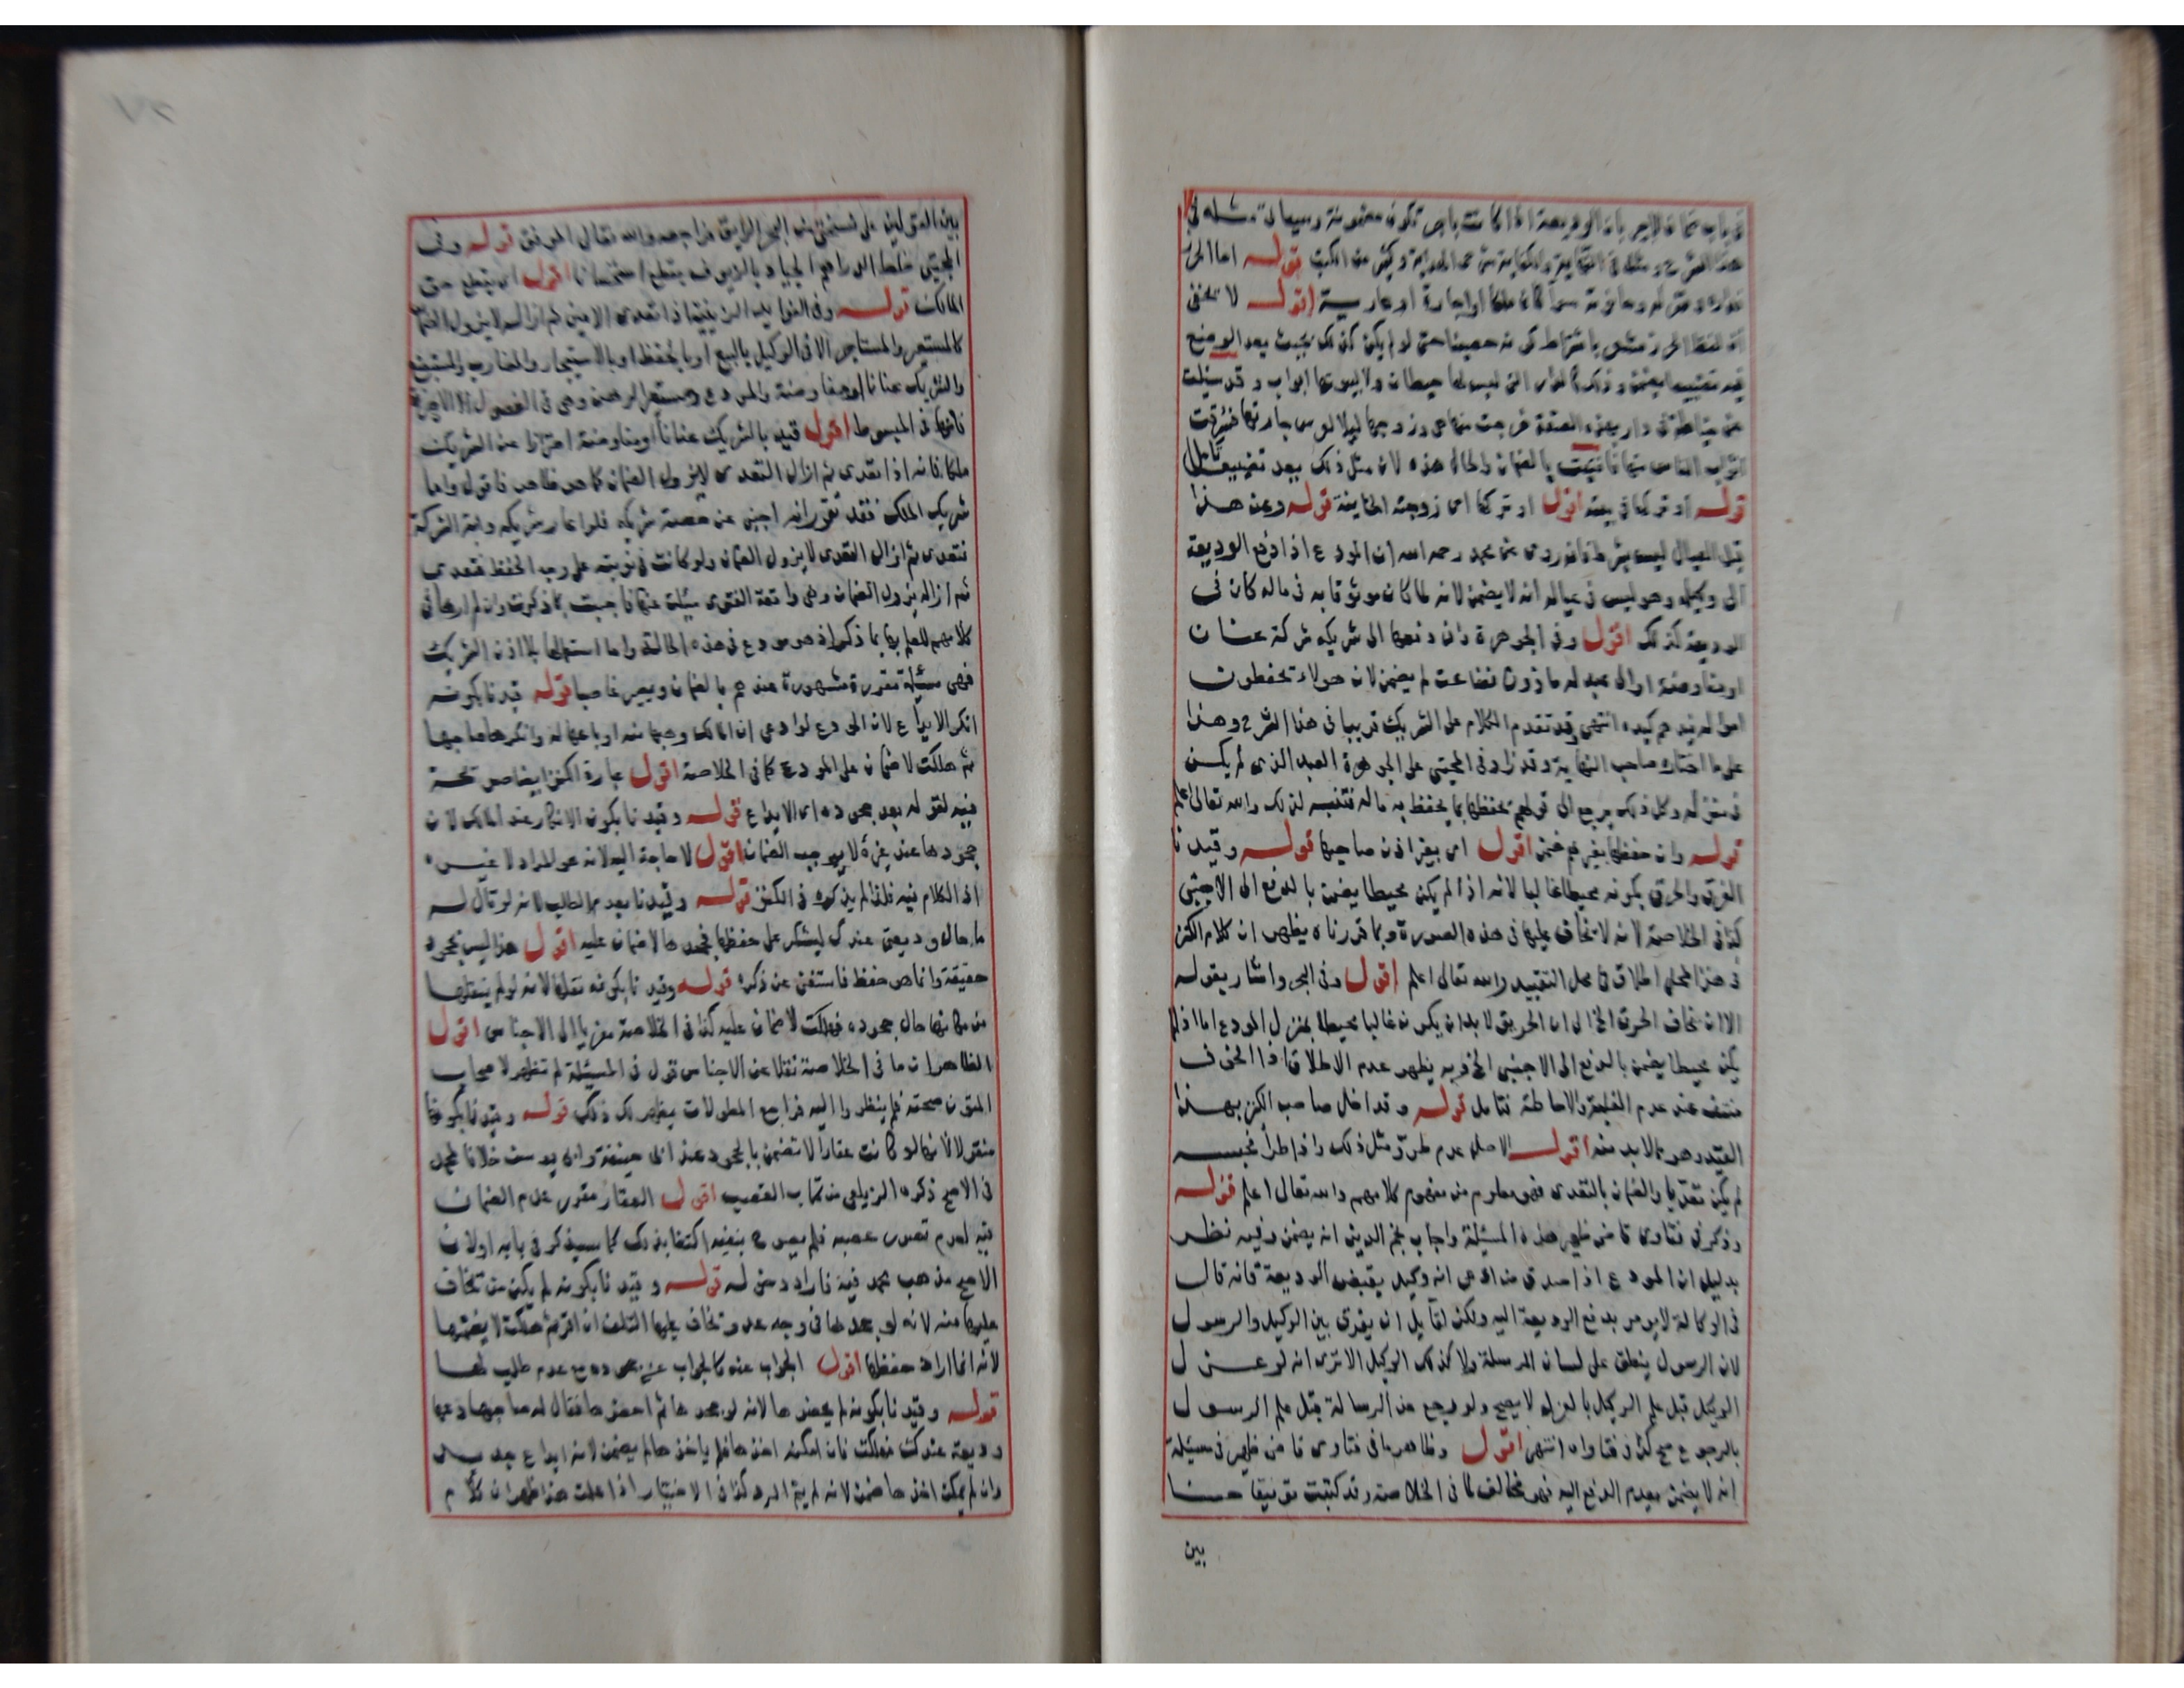 في باب ضمان الاجير بان الوديعة اذا كانت باجر تكون مضمونة وسيأتي مثله في
هذا الشرح ومثله في النهاية والكفاية شرح الهداية وكثير من الكتب قوله اما الحرز
فداره ومنزله وحانوته سواء كان ملكا او اجارة او عارية اقول لا يخفى
ان لفظ الحرز مشعر باشتراط كونه حصينا حتى لو لم يكن كذلك بحيث يعد الوضع
فيه تضييعا يضمن وذلك كالدار التي ليس لها حيطان ولا لبيوتها ابواب وقد سئلت
عن خياطة في دار بهذه الصفة خرجت منها هي وزوجها ليلا لعرس جارتها فسرقت
اثواب الناس منها فافتيت بالضمان والحالة هذه لان مثل ذلك يعد تضييعا تأمل
قوله او تركها في بيته اقول او تركها اي زوجته الخاينة قوله وعن هذا
قيل العيال ليس بشرط فانه روى عن محمد رحمه الله ان المودع اذا دفع الوديعة
الى وكيله وهو ليس في عياله انه لا يضمن لانه لما كان موثوقا به في ماله كان في
الوديعة كذلك اقول وفي الجوهرة وان دفعها الى شريكه شركة عنان
او مفاوضة او الى عبد له ماذون فضاعت لم يضمن لان هولاء يحفظون
امواله فيدهم كيده انتهى وقد تقدم الكلام على الشريك قريبا في هذا الشرح وهذا
على ما اختاره صاحب النهاية وقد زاد في المجتبى على الجوهرة العبد الذي لم يكن
في منزله وكل ذلك يرجع الى قولهم يحفظها بما يحفظ به ماله فتنبه لذلك والله تعالى اعلم
قوله وان حفظها بغيرهم ضمن اقول اي بغير اذن صاحبها قوله وقيدنا
الغرق والحرق بكونه محيطا غالبا لانه اذا لم يكن محيطا يضمن بالدفع الى الاجنبي
كذا في الخلاصة لانه لا يخاف عليها في هذه الصورة وبما قررناه يظهر ان كلام الكنز
في هذا المحل اطلاق في محل التقييد والله تعالى اعلم اقول وفي البحر واشار بقوله
الا ان يخاف الحرق الخ الى ان الحريق لا بد ان يكون غالبا محيطا بمنزل المودع اما اذا لم
يكن محيطا يضمن بالدفع الى الاجنبي الخ فربه يظهر عدم الاطلاق اذا الخوف
منتف عند عدم الغلبة والاحاطة فتامل قوله وقد اخل صاحب الكنز بهذا
القيد وهو مما لا بد منه اقول الاصل عدم طرو مثل ذلك واذا طرأ فحبسه
لم يكن تعديا والضمان بالتعدي فهو معلوم من مفهوم كلامهم والله تعالى اعلم قوله
وذكر في فتاوى قاضي ظهير هذه المسئلة واجاب نجم الدين انه يضمن وفيه نظر
بدليل ان المودع اذا صدق من ادعى انه وكيل بقبض الوديعة فانه قال
في الوكالة لا يومر بدفع الوديعة اليه ولكن لقايل ان يفرق بين الوكيل والرسول
لان الرسول ينطق على لسان المرسلة ولا كذلك الوكيل الا ترى انه لو عزل
الوكيل قبل علم الوكيل بالعزل لا يصح ولو رجع عن الرسالة قبل علم الرسول
بالرجوع صح كذا في فتاواه انتهى اقول وظاهر ما في فتاوى قاضي ظهير في مسئلة
انه لا يضمن بعدم الدفع اليه فهو مخالف لما في الخلاصة وقد كتبت توفيقا حسنا
بين
بين القولين على نسختي من البحر الرايق فراجعه والله تعالى الموفق قوله وفي
المجتبى خلط الدراهم الجياد بالزيوف يقطع استحسانا اقول اي يقطع حق
المالك قوله وفي الفوايد الزينية اذا تعدى الامين ثم ازاله لا يزول الضمان
كالمستعير والمستاجر الا في الوكيل بالبيع او بالحفظ او بالاستيجار والمضارب والمستبضع
والشريك عنانا او مفاوضة والمودع ومستعير الرهن وهي في الفصول الا الاخيرة
فانها في المبسوط اقول قيد بالشريك عنانا او مفاوضة احترازا عن الشريك
ملكا فانه اذا تعدى ثم ازال التعدي لا يزول الضمان كما هو ظاهر فاقول واما
شريك الملك فقد تقرر انه اجنبي عن حصة شريكه فلو اعار شريكه دابة الشركة
فتعدى ثم ازال التعدي لا يزول الضمان ولو كانت في نوبته على وجه الحفظ فتعدى
ثم ازاله يزول الضمان وهي واقعة الفتوى سئلت عنها فاجبت بما ذكرت وان لم ارها في
كلامهم للعلم بها بما ذكروا اذ هو مودع في هذه الحالة واما استعمالها بلا اذن الشريك
فهي مسئلة مقررة مشهورة عندهم بالضمان ويصير غاصبا قوله قيدنا بكونه
انكر الايداع لان المودع لو ادعى ان المالك وهبها منه او باعها له وانكر صاحبها
ثم هلكت لا ضمان على المودع كما في الخلاصة اقول عبارة الكنز ايضا صريحة
فيه لقوله بعد جحوده اي الايداع قوله وقيدنا بكون الانكار عند المالك لان
جحودها عند غيره لا يوجب الضمان اقول لا حاجة اليه لانه هو المراد لا غيره
اذ الكلام فيه فلذا لم يذكره في الكنز قوله وقيدنا بعد الطلب لانه لو قال له
ما حال وديعتي عندك ليشكر على حفظها فجحدها لا ضمان عليه اقول هذا ليس بجحود
حقيقة وانما هو حفظ فاستغنى عن ذكره قوله وقيدنا بكونه نقلها لانه لو لم ينقلها
من مكانها حال جحوده فهلكت لا ضمان عليه كذا في الخلاصة معزيا الى الاجناس اقول
الظاهر ان ما في الخلاصة نقلا عن الاجناس قول في المسئلة لم تظهر لاصحاب
المتون صحته فلم ينظروا اليه فراجع المطولات يظهر لك ذلك قوله وقيدنا بكونها
منقولا لانها لو كانت عقارا لا تضمن بالجحود عند ابي حنيفة وابي يوسف خلافا لمحمد
في الاصح ذكره الزيلعي من كتاب الغصب اقول العقار مقرر عدم الضمان
فيه لعدم تصور غصبه فلم يصرح بنفيه اكتفا بذلك كما سيذكر في بابه اولان
الاصح مذهب محمد فيه فاراد دخوله قوله وقيدنا بكونه لم يكن من تخاف
عليها منه لانه لو جحدها في وجه عدو تخاف عليها التلف ان اقر ثم هلكت لا يضمنها
لانه انما اراد حفظها اقول الجواب عنه كالجواب عن جحوده مع عدم طلب لها
قوله وقيدنا بكونه لم يحضرها لانه لو جحدها ثم احضرها فقال له صاحبها دعها
وديعة عندك فهلكت فان امكنه اخذها فلم ياخذها لم يضمن لانه ايداع جديد
وان لم يمكن اخذها ضمن لانه لم يتم الرد كذا في الاختيار اذا علمت هذا ظهر ان كلام